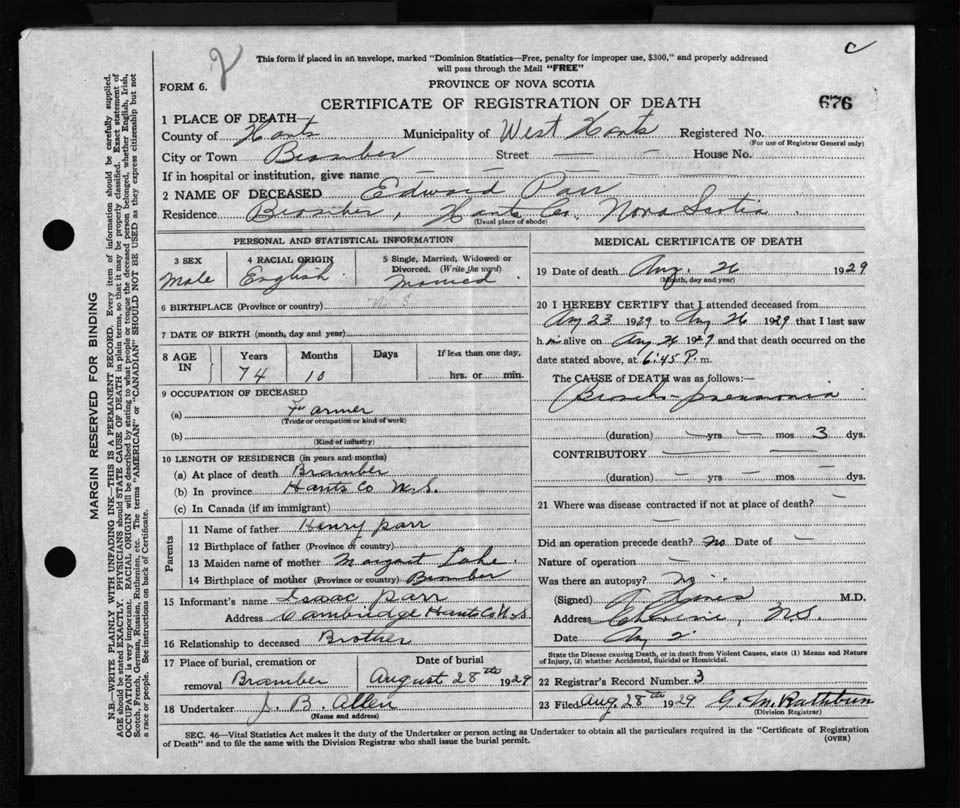 2
C
This form if placed in an envelope, marked "Dominion Statistics—Free, penalty for improper use, $300," and properly addressed
will pass through the Mail "FREE"
FORM 6.
PROVINCE OF NOVA SCOTIA
CERTIFICATE OF REGISTRATION OF DEATH
676
1 PLACE OF DEATH—
County of Hants Municipality of West Hants Registered No.
(For use of Registrar General only)
City or Town Bramber Street — — House No.
If in hospital or institution, give name — — —
2 NAME OF DECEASED Edward Parr
Residence Bramber, Hants Co., Nova Scotia
(Usual place of abode)
PERSONAL AND STATISTICAL INFORMATION
3 SEX 4 RACIAL ORIGIN 5 Single, Married, Widowed or
Divorced. (Write the word)
Male English Married
6 BIRTHPLACE (Province or country) N. S.
7 DATE OF BIRTH (month, day and year)
8 AGE IN Years Months Days If less than one day,
74 10 hrs. or min.
9 OCCUPATION OF DECEASED
(a) Farmer
(Trade or occupation or kind of work)
(b)
(Kind of industry)
10 LENGTH OF RESIDENCE (in years and months)
(a) At place of death Bramber
(b) In province Hants Co N.S.
(c) In Canada (if an immigrant)
Parents
11 Name of father Henry Parr
12 Birthplace of father (Province or country)
13 Maiden name of mother Margaret Lake
14 Birthplace of mother (Province or country) Bramber
15 Informant's name Isaac Parr
Address Cambridge Hants Co N.S
16 Relationship to deceased Brother
17 Place of burial, cremation or Date of burial
removal Bramber August 28th 1929
18 Undertaker J. B. Allen
(Name and address)
MEDICAL CERTIFICATE OF DEATH
19 Date of death Aug. 26 1929
(Month, day and year)
20 I HEREBY CERTIFY that I attended deceased from
Aug 23 1929 to Aug 26 1929 that I last saw
h im alive on Aug 26 1929 and that death occurred on the
date stated above, at 6:45 P. m.
The CAUSE of DEATH was as follows:—
Broncho-pneumonia
(duration) — yrs — mos 3 dys.
CONTRIBUTORY — —
(duration) — yrs — mos — dys.
21 Where was disease contracted if not at place of death?
—
Did an operation precede death? No Date of —
Nature of operation —
Was there an autopsy? No
(Signed) M.D.
Address N.S
Date Aug 2
State the Disease causing Death, or in death from Violent Causes, state (1) Means and Nature
of Injury, (2) whether Accidental, Suicidal or Homicidal.
22 Registrar's Record Number 3
23 Filed Aug. 28th 1929 G. M. Rathbun
(Division Registrar)
SEC. 46—Vital Statistics Act makes it the duty of the Undertaker or person acting as Undertaker to obtain all the particulars required in the "Certificate of Registration
of Death" and to file the same with the Division Registrar who shall issue the burial permit.
(OVER)
MARGIN RESERVED FOR BINDING
N.B.—WRITE PLAINLY WITH UNFADING INK—THIS IS A PERMANENT RECORD. Every item of information should be carefully supplied.
AGE should be stated EXACTLY. PHYSICIANS should STATE CAUSE OF DEATH in plain terms, so that it may be properly classified. Exact statement of
OCCUPATION is very important. RACIAL ORIGIN will be described by stating to what people or tongue the deceased person belonged, whether English, Irish,
Scotch, French, German, Russian, Ruthenian, etc. The terms "AMERICAN" or "CANADIAN" SHOULD NOT BE USED as they express citizenship but not
a race or people. See instructions on back of Certificate.